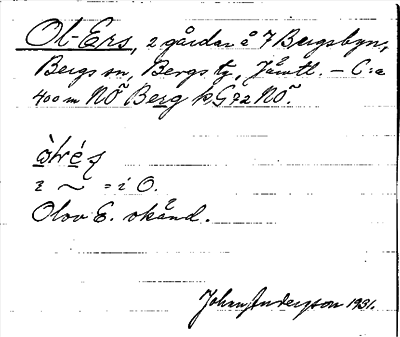 Ol-Ers, 2 gårdar å 7 Bergsbyn,
Bergs sn, Bergs tg, Jämtl. – C:a
400 m NÖ Berg k G72 NÖ.
i ~ = i O.
Olov E. okänd.
Johan Anderson 1931.